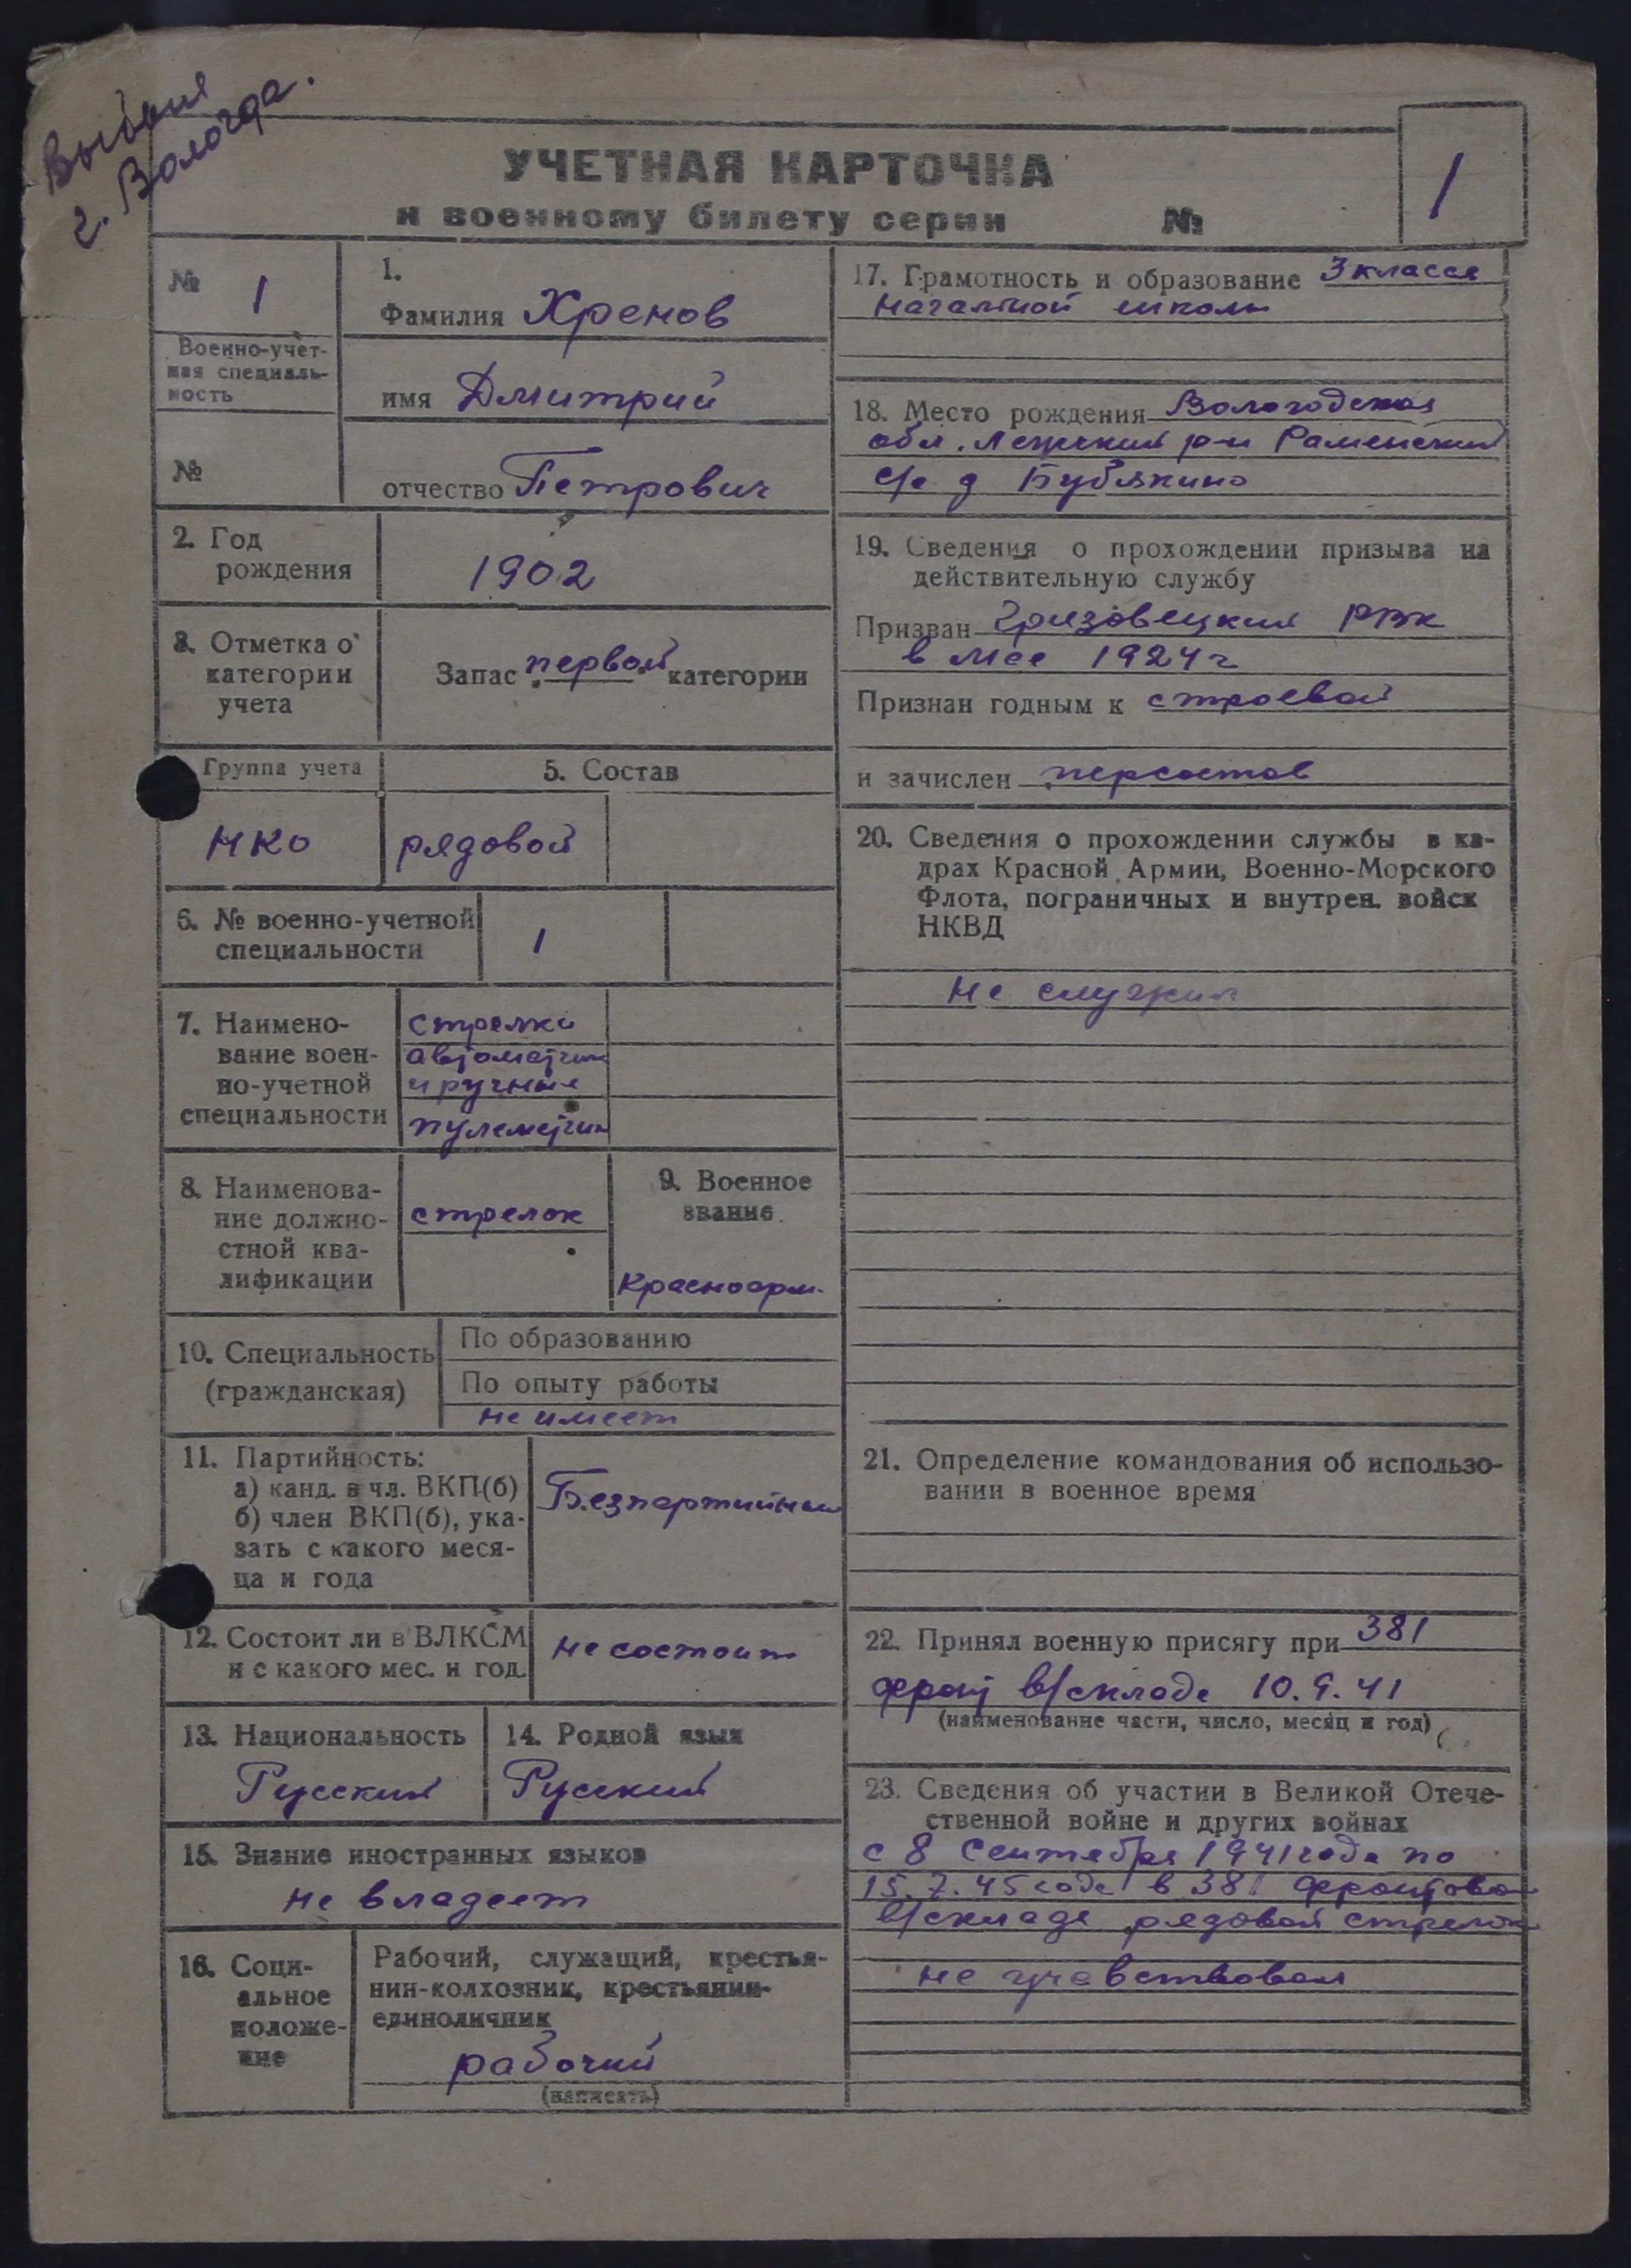 Выбыл
г. Вологда.
УЧЕТНАЯ КАРТОЧКА
к военному билету серии №
1
№ 1
Военно-учет-
ная специаль-
ность
№
1.
Фамилия Хренов
имя Дмитрий
отчество Петрович
2. Год
рождения
1902
3. Отметка о
категории
учета
Запас первой категории
Группа учета
5. Состав
НКО
рядовой
6. № военно-учетной
специальности
1
7. Наимено-
вание воен-
но-учетной
специальности
стрелки
автоматчик
и ручные
пулеметчик
8. Наименова-
ние должно-
стной ква-
лификации
стрелок
9. Военное
звание
Красноарм.
10. Специальность
(гражданская)
По образованию
По опыту работы
не имеет
11. Партийность:
а) канд. в чл. ВКП(б)
б) член ВКП(б), ука-
зать с какого меся-
ца и года
Безпартийный
12. Состоит ли в ВЛКСМ
и с какого мес. и год.
не состоит
13. Национальность
Русский
14. Родной язык
Русский
15. Знание иностранных языков
не владеет
16. Соци-
альное
положе-
ние
Рабочий, служащий, крестья-
нин-колхозник, крестьянин-
единоличник
рабочий
(написать)
17. Грамотность и образование 3 класса
начальной школы
18. Место рождения Вологодская
обл. Лежский р-н Раменский
с/с д Бубякино
19. Сведения о прохождении призыва на
действительную службу
Призван Грязовецкий РВК
в мае 1924 г
Признан годным к строевой
и зачислен персостав
20. Сведения о прохождении службы в ка-
драх Красной Армии, Военно-Морского
Флота, пограничных и внутрен. войск
НКВД
не служил
21. Определение командования об использо-
вании в военное время
22. Принял военную присягу при 381
фронт в/складе 10.9.41
(наименование части, число, месяц и год)
23. Сведения об участии в Великой Отече-
ственной войне и других войнах
с 8 Сентября 1941 года по
15.7.45 года в 381 фронтовом
в/складе рядовой стрелок
не участвовал